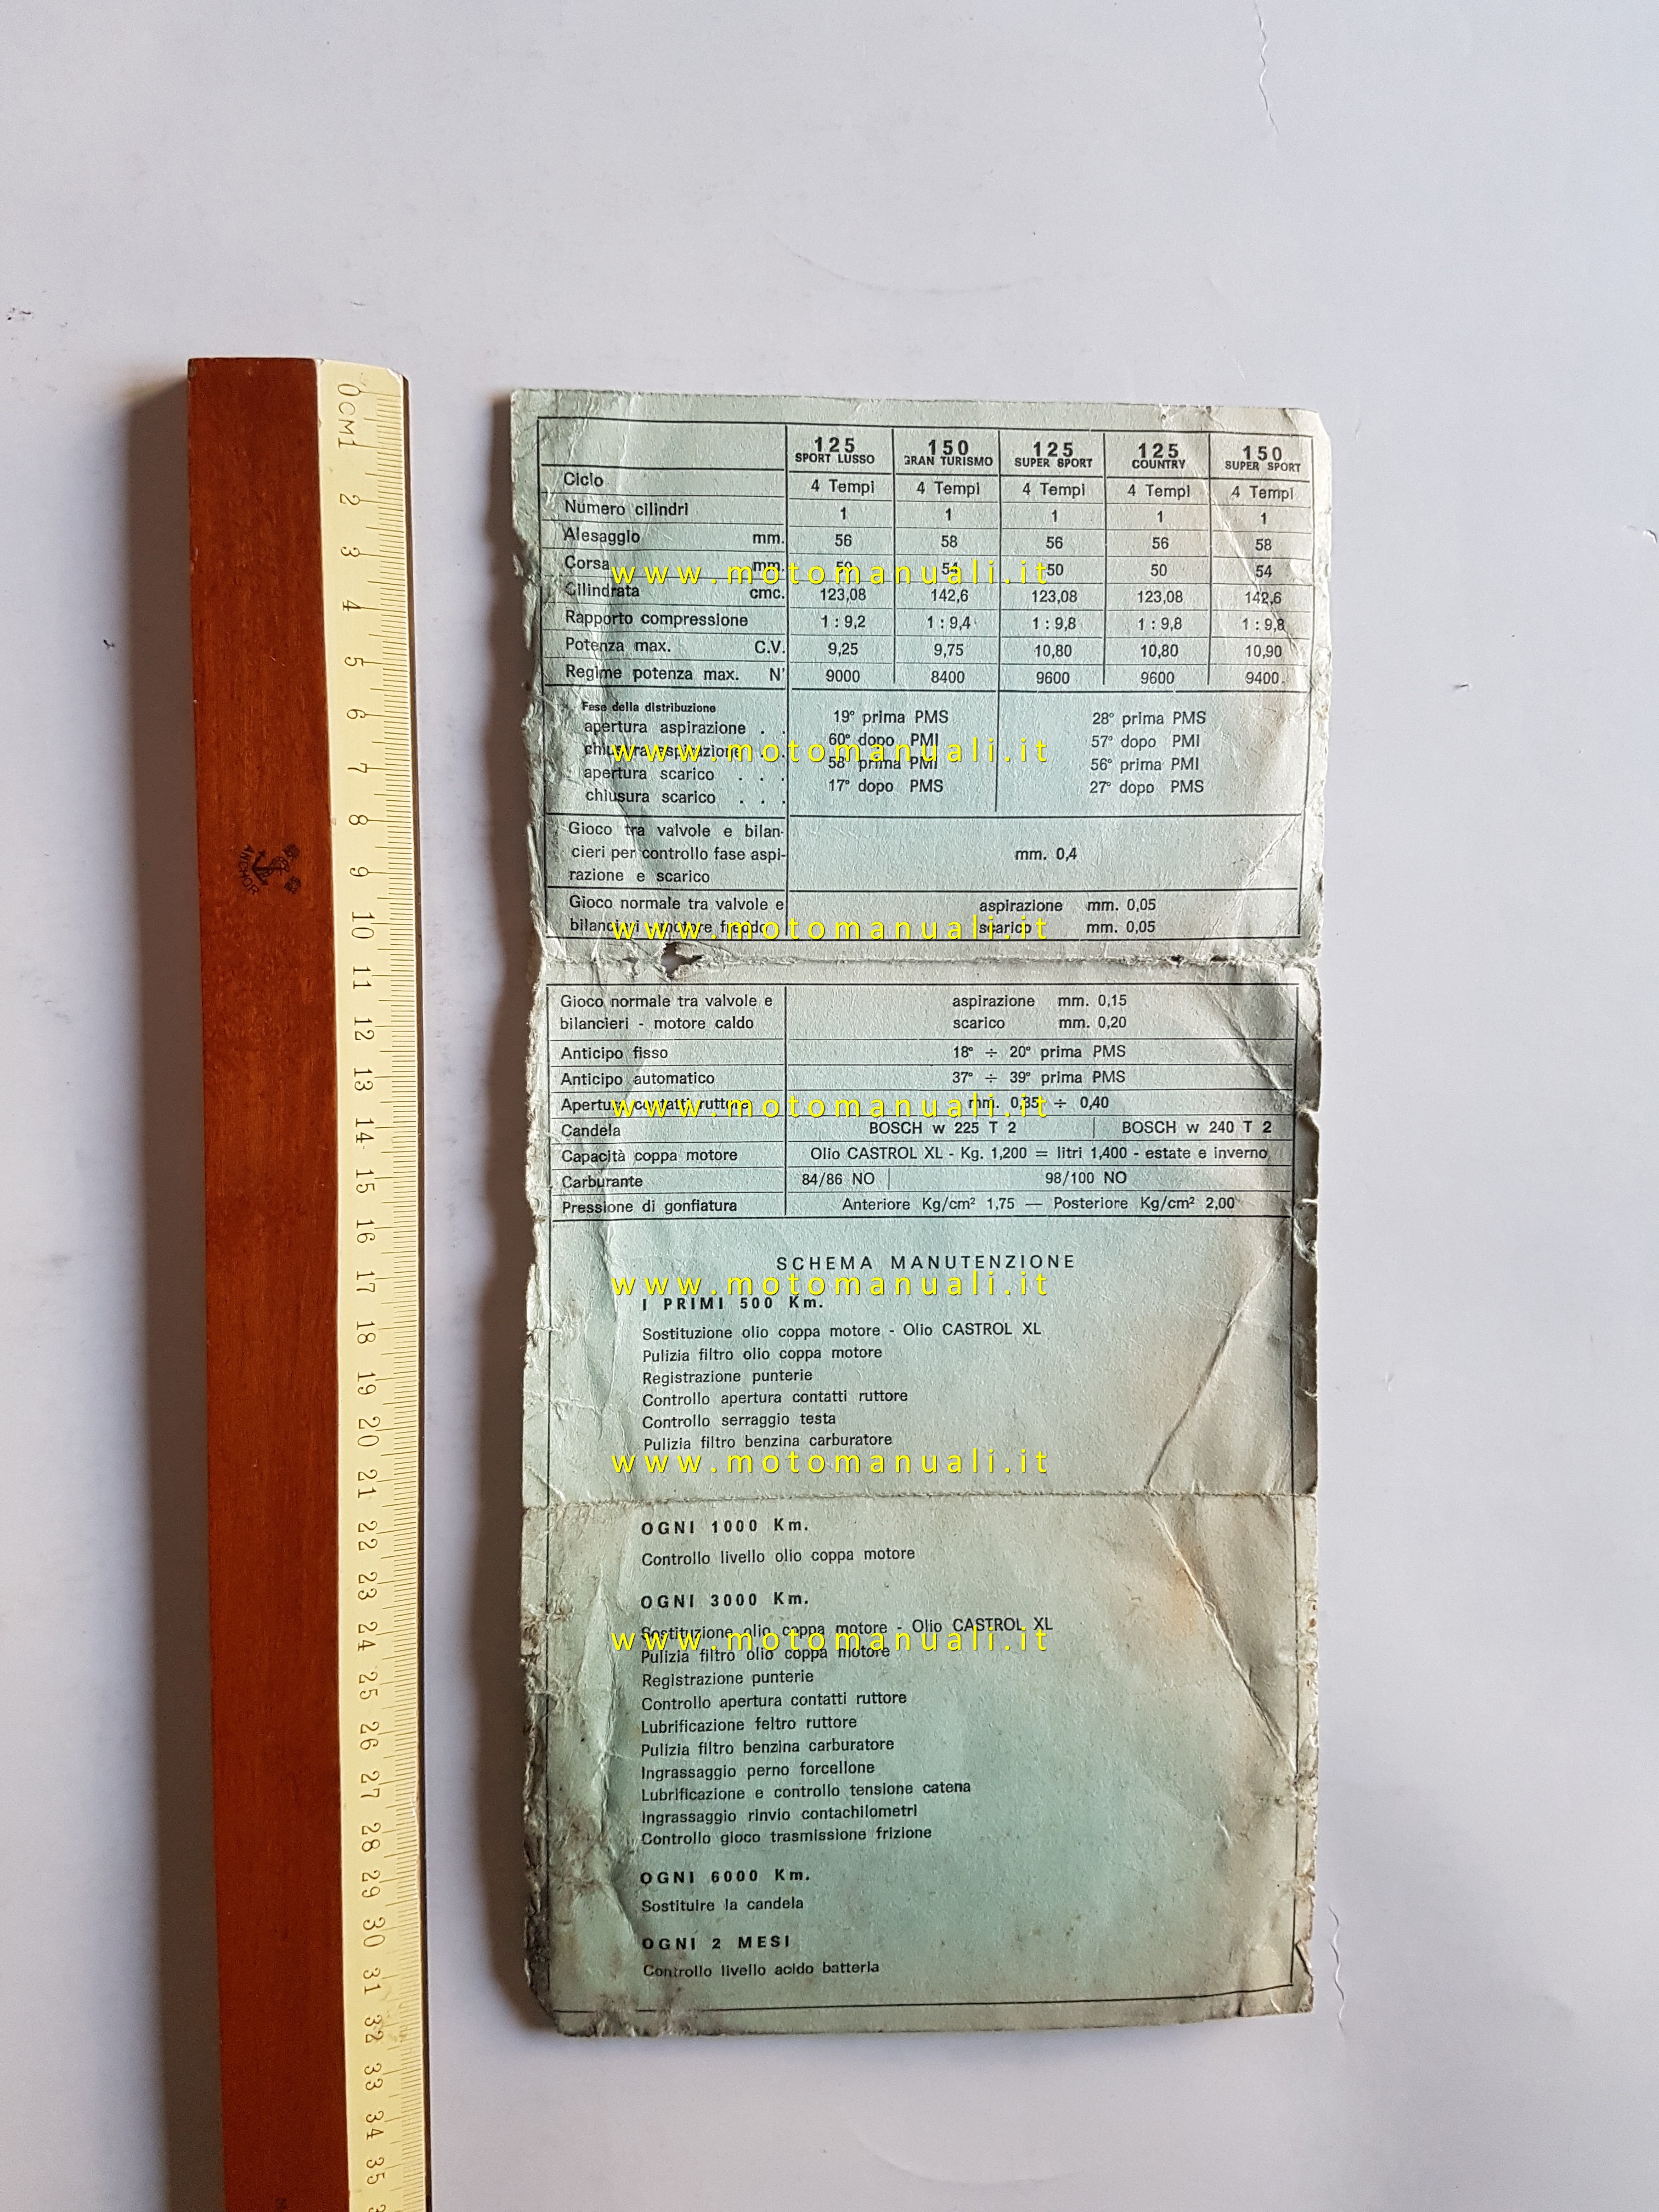 0CM1
2
3
4
5
6
7
8
9
10
11
12
13
14
15
16
17
18
19
20
21
22
23
24
25
26
27
28
29
30
31
32
33
34
35
ANCHOR
125 150 125 125 150
SPORT LUSSO GRAN TURISMO SUPER SPORT COUNTRY SUPER SPORT
Ciclo 4 Tempi 4 Tempi 4 Tempi 4 Tempi 4 Tempi
Numero cilindri 1 1 1 1 1
Alesaggio mm. 56 58 56 56 58
Corsa mm. 50 54 50 50 54
Cilindrata cmc. 123,08 142,6 123,08 123,08 142,6
Rapporto compressione 1 : 9,2 1 : 9,4 1 : 9,8 1 : 9,8 1 : 9,8
Potenza max. C.V. 9,25 9,75 10,80 10,80 10,90
Regime potenza max. N' 9000 8400 9600 9600 9400
Fase della distribuzione
apertura aspirazione . . 19° prima PMS 28° prima PMS
chiusura aspirazione . . 60° dopo PMI 57° dopo PMI
apertura scarico . . . 58° prima PMI 56° prima PMI
chiusura scarico . . . 17° dopo PMS 27° dopo PMS
Gioco tra valvole e bilan-
cieri per controllo fase aspi- mm. 0,4
razione e scarico
Gioco normale tra valvole e aspirazione mm. 0,05
bilancieri motore freddo scarico mm. 0,05
Gioco normale tra valvole e aspirazione mm. 0,15
bilancieri - motore caldo scarico mm. 0,20
Anticipo fisso 18° ÷ 20° prima PMS
Anticipo automatico 37° ÷ 39° prima PMS
Apertura contatti ruttore mm. 0,35 ÷ 0,40
Candela BOSCH w 225 T 2 BOSCH w 240 T 2
Capacità coppa motore Olio CASTROL XL - Kg. 1,200 = litri 1,400 - estate e inverno
Carburante 84/86 NO 98/100 NO
Pressione di gonfiatura Anteriore Kg/cm² 1,75 — Posteriore Kg/cm² 2,00
SCHEMA MANUTENZIONE
I PRIMI 500 Km.
Sostituzione olio coppa motore - Olio CASTROL XL
Pulizia filtro olio coppa motore
Registrazione punterie
Controllo apertura contatti ruttore
Controllo serraggio testa
Pulizia filtro benzina carburatore
OGNI 1000 Km.
Controllo livello olio coppa motore
OGNI 3000 Km.
Sostituzione olio coppa motore - Olio CASTROL XL
Pulizia filtro olio coppa motore
Registrazione punterie
Controllo apertura contatti ruttore
Lubrificazione feltro ruttore
Pulizia filtro benzina carburatore
Ingrassaggio perno forcellone
Lubrificazione e controllo tensione catena
Ingrassaggio rinvio contachilometri
Controllo gioco trasmissione frizione
OGNI 6000 Km.
Sostituire la candela
OGNI 2 MESI
Controllo livello acido batteria
www.motomanuali.it
www.motomanuali.it
www.motomanuali.it
www.motomanuali.it
www.motomanuali.it
www.motomanuali.it
www.motomanuali.it